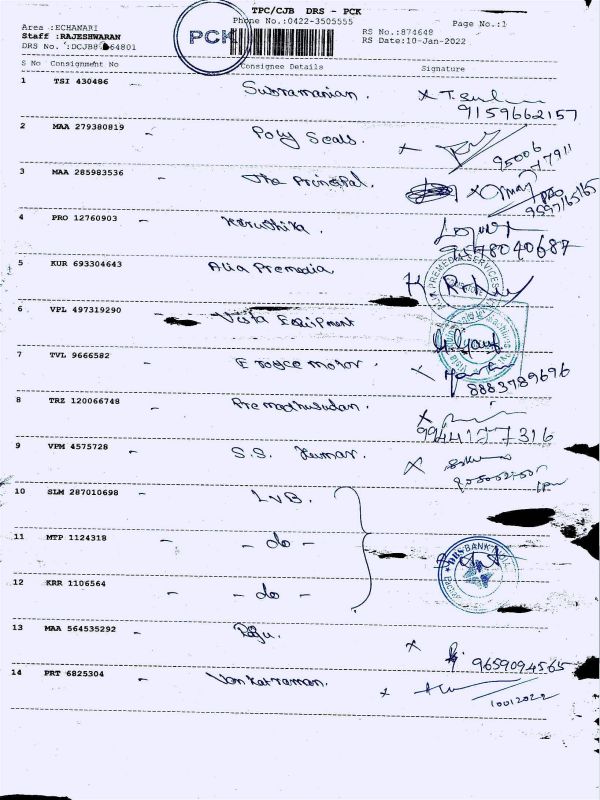 TPC/CJB DRS - PCK
Phone No.:0422-3505555
Page No.:1
Area :ECHANARI
Staff :RAJESHWARAN
PCK
RS No.:874648
RS Date:10-Jan-2022
S No Consignment No Consignee Details Signature
1 TSI 430486 - Subramanian.
9159662157
2 MAA 279380819 - Poly Seals.
95006
77911
3 MAA 285983536 - The Principal.
4 PRO 12760903 -
5 KUR 693304643 Alia Premedia
6 VPL 497319290 - Vista Equipment
7 TVL 9666582 - E royce motor.
8883789696
8 TRZ 120066748 - Premadhusudan.
9944177316
9 VPM 4575728 - S.S. Kumar.
10 SLM 287010698 - LVB.
11 MTP 1124318 - - do -
BANK
12 KRR 1106564 - - do -
13 MAA 564535292 - Raju.
9659094565
14 PRT 6825304 - Venkatraman.
10012022